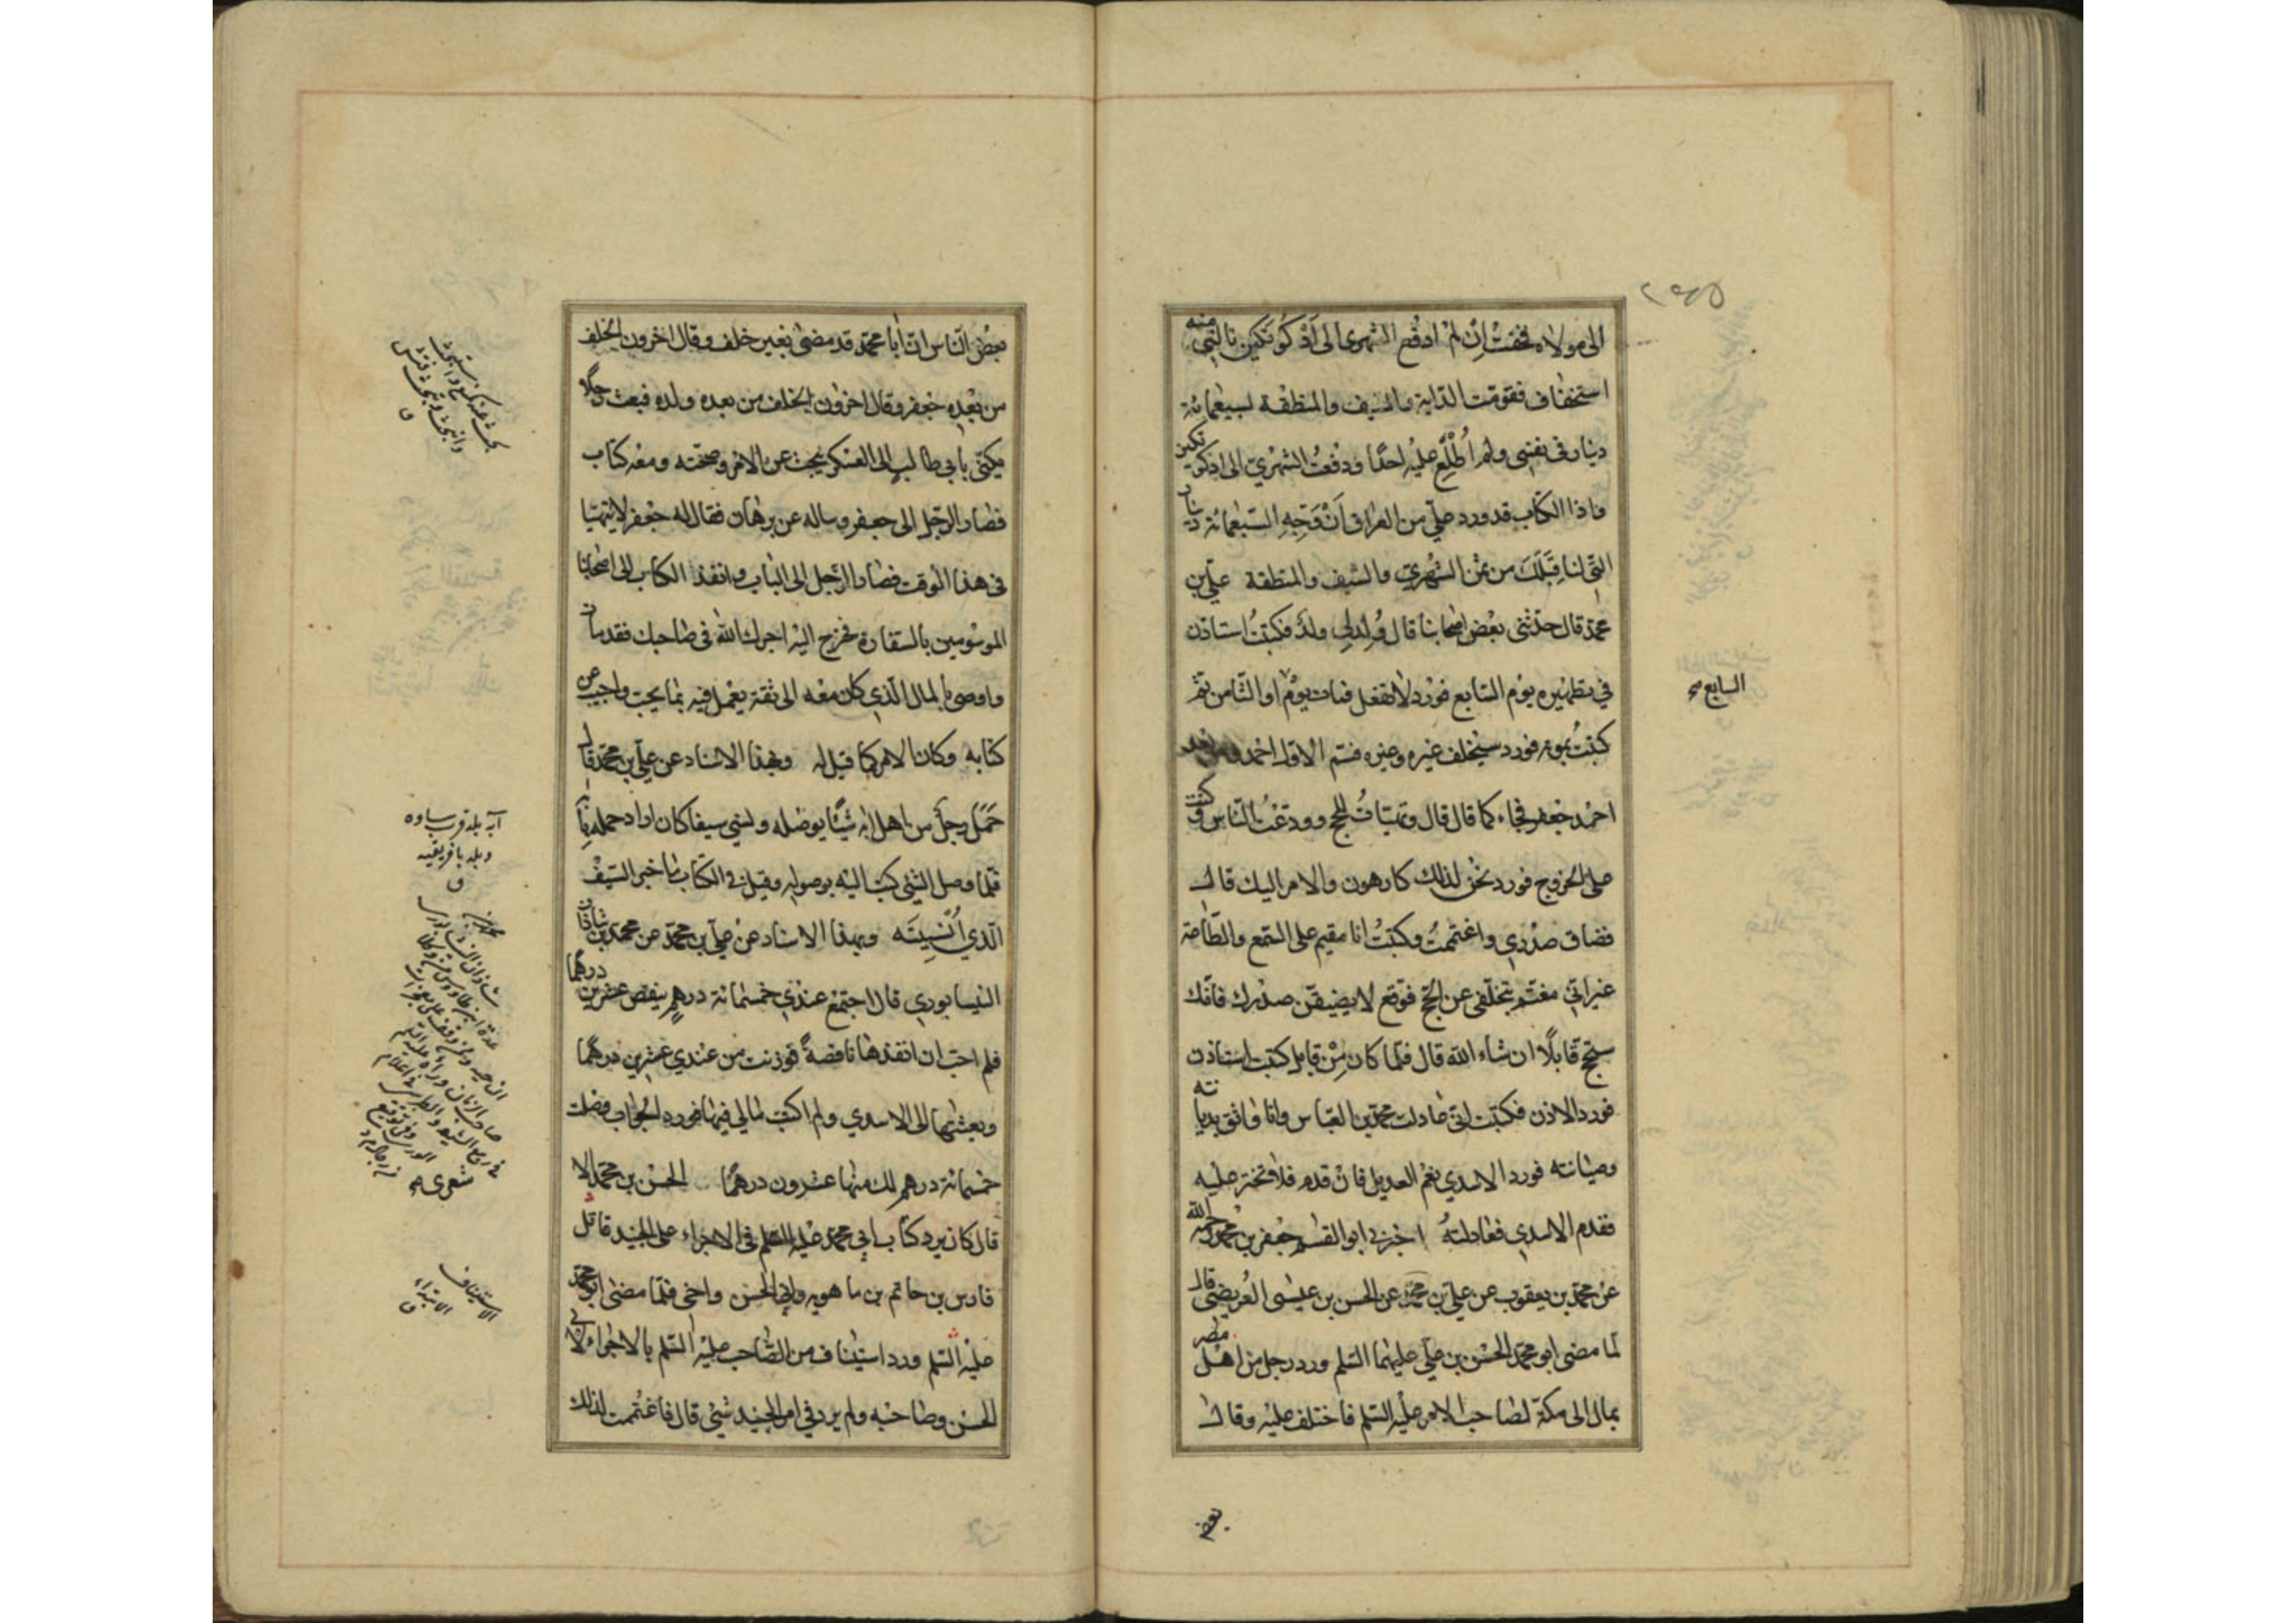 ٢٤٥
الى مولاه فخفت إن لم ادفع الشهرى الى أذكوتكين نالنى منه
استخفاف فقومت الدابة والسيف والمنطقة لسبعمائة
دينار فى نفسى ولم أُطْلِع عليه احدًا ودفعتُ الشهرىّ الى اذكوتكين
واذا الكتاب قد ورد علىّ من العراق أَنْ وَجِّهِ السبعمائة دينار
التى لنا قِبَلَكَ من ثمن الشهرى والسيف والمنطقة على بن
محمد قال حدّثنى بعض اصحابنا قال وُلِدَ لى ولد فكتبتُ استاذن
فى تطهيره يوم السابع فورد لا تفعل فمات يوم او الثامن ثم
السابع صح
كتبتُ بموته فورد ستخلف غيره وغيره فسم الاول احمد ومن بعد
احمد جعفر فجاء كما قال قال وتهيّاتُ للحج وودّعتُ الناس وكنت
على الخروج فورد نحن لذلك كارهون والامر اليك قال
فضاق صدرى واغتممتُ وكتبتُ انا مقيم على السمع والطّاعة
غير انّى مغتم بتخلّفى عن الحجّ فوقع لا يضيقن صدرك فانّك
ستحج قابلًا ان شاء الله قال فلمّا كان مِنْ قابل كتبت استاذن
فورد الاذن فكتبت انى عادلت محمد بن العباس وانا واثق بديانته
وصيانته فورد الاسدى نعم العديل فان قدم فلا تختر عليه
فقدم الاسدى فعادلتهُ اخبرنى ابو القسم جعفر بن محمد رحمه الله
عن محمد بن يعقوب عن على بن محمّد عن الحسن بن عيسى العُريضى قال
لمّا مضى ابو محمّد الحسن بن علىّ عليهما السّلم ورد رجل من اهل مصر
بمال الى مكة لصاحب الامر عليه السّلم فاختلف عليه وقال
بعض
بعض النّاس انّ أبا محمّد قد مضى بغير خلف وقال اخرون الخلف
من بعده جعفر وقال اخرون الخلف من بعده ولده فبعث رجلًا
يكنّى بابى طالب الى العسكر يبحث عن الامر وصحّته ومعه كتاب
فصار الرّجل الى جعفر وساله عن برهان فقال له جعفر لا يتهيّا
فى هذا الوقت فصار الرّجل الى الباب وانفذ الكتاب الى اصحابنا
الموسومين بالسفارة فخرج اليه اجرك الله فى صاحبك فقد مات
واوصى بالمال الّذى كان معه الى ثقة يعمل فيه بما يجب واجيب عن
كتابه وكان الامر كما قيل له وبهذا الاسناد عن علىّ بن محمّد قال
حَمَلَ رجلٌ من اهل ابه شيئًا يوصله ونسى سيفا كان اراد حمله
فلمّا وصل الشئ كتب اليه بوصوله وقيل فى الكتاب ما خبر السّيف
الّذى أُنْسِيتَه وبهذا الاسناد عن علىّ بن محمّد عن محمّد بن شاذان
النيسابورى قال اجتمع عندى خمسمائة درهم ينقص عشرين درهمًا
فلم احبّ ان انفذها ناقصةً فوزنت من عندى عشرين درهمًا
وبعثتها الى الاسدى ولم اكتب مالى فيها فورد الجواب وصلت
خمسمائة درهم لك منها عشرون درهمًا الحسن بن محمّد الا
قال كان يرد كتاب ابى محمّد عليه السّلم فى الاجراء على الجنيد قاتل
فارس بن حاتم بن ماهويه وابى الحسن واخى فلمّا مضى ابو محمّد
عليه السّلم ورد استيناف من الصّاحب عليه السّلم بالاجراء لابى
الحسن وصاحبه ولم يرد فى امر الجنيد شئ قال فاغتممت لذلك
آبه بلد قرب ساوه
وبلد بافريقيه
ق
الاستيناف
الابتداء
ق